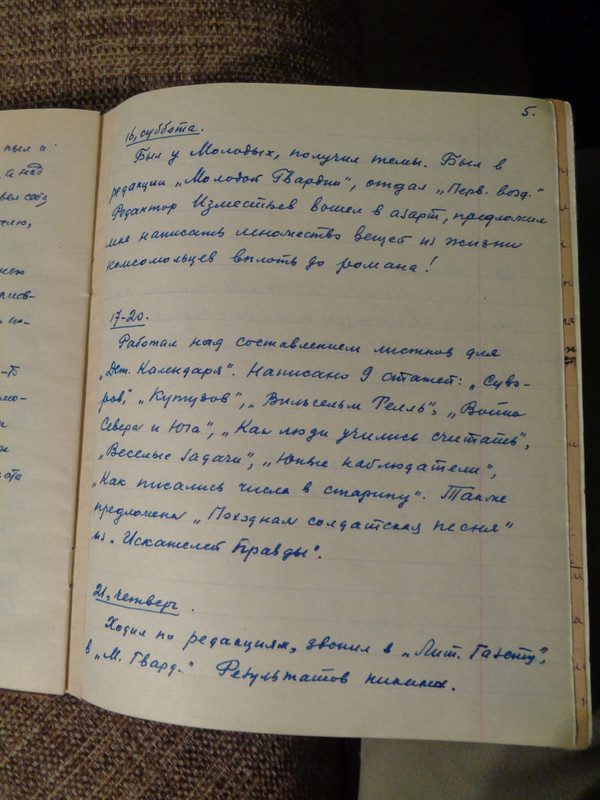 5.
16, суббота.
Был у Молодых, получил темы. Был в
редакции „Молодой Гвардии", отдал „Перв. возд."
Редактор Изместьев вошел в азарт, предложил
мне написать множество вещей из жизни
комсомольцев вплоть до романа!
17-20.
Работал над составлением листков для
„Дет. Календаря". Написано 9 статей: „Суво-
ров", „Кутузов", „Вильгельм Телль", „Война
Севера и Юга", „Как люди учились считать",
„Веселые задачи", „Юные наблюдатели",
„Как писались числа в старину". Также
предложена „Походная солдатская песня"
из „Искателей Правды".
21, четверг.
Ходил по редакциям, звонил в „Лит. Газету",
в „М. Гвард." Результатов никаких.